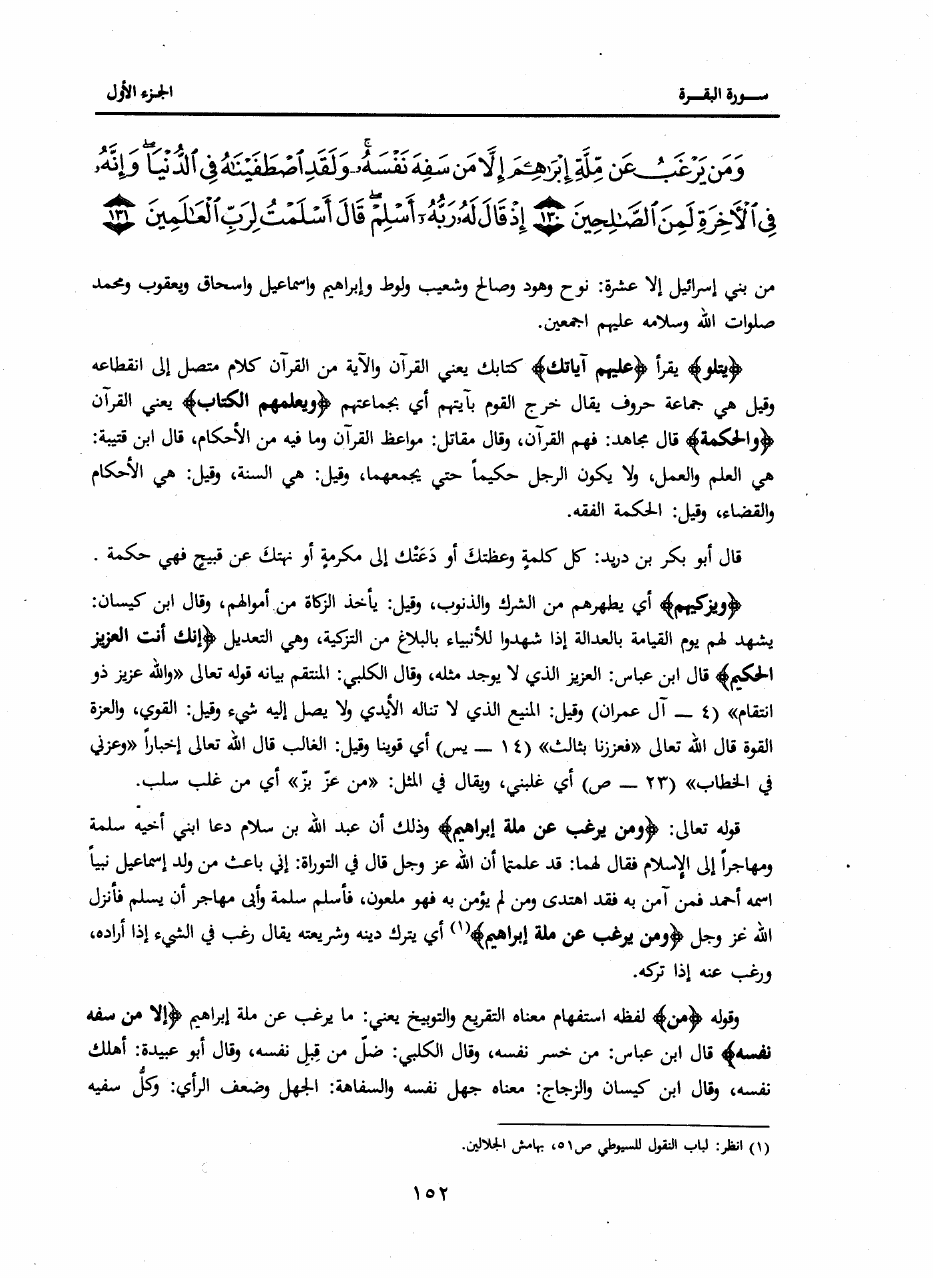 سورة البقرة
الجزء الأول
وَمَن يَرْغَبُ عَن مِّلَّةِ إِبْرَاهِـۧمَ إِلَّا مَن سَفِهَ نَفْسَهُۥۚ وَلَقَدِ ٱصْطَفَيْنَٰهُ فِى ٱلدُّنْيَاۖ وَإِنَّهُۥ
فِى ٱلْأَخِرَةِ لَمِنَ ٱلصَّٰلِحِينَ ١٣٠ إِذْ قَالَ لَهُۥ رَبُّهُۥٓ أَسْلِمْۖ قَالَ أَسْلَمْتُ لِرَبِّ ٱلْعَٰلَمِينَ ١٣١
من بني إسرائيل إلا عشرة: نوح وهود وصالح وشعيب ولوط وإبراهيم واسماعيل واسحاق ويعقوب ومحمد
صلوات الله وسلامه عليهم اجمعين.
﴿يتلو﴾ يقرأ ﴿عليهم آياتك﴾ كتابك يعني القرآن والآية من القرآن كلام متصل إلى انقطاعه
وقيل هي جماعة حروف يقال خرج القوم بآيتهم أي بجماعتهم ﴿ويعلمهم الكتاب﴾ يعني القرآن
﴿والحكمة﴾ قال مجاهد: فهم القرآن، وقال مقاتل: مواعظ القرآن وما فيه من الأحكام، قال ابن قتيبة:
هي العلم والعمل، ولا يكون الرجل حكيماً حتي يجمعهما، وقيل: هي السنة، وقيل: هي الأحكام
والقضاء، وقيل: الحكمة الفقه.
قال أبو بكر بن دريد: كل كلمةٍ وعظتكَ أو دَعَتْك إلى مكرمةٍ أو نهتكَ عن قبيحٍ فهي حكمة .
﴿ويزكيهم﴾ أي يطهرهم من الشرك والذنوب، وقيل: يأخذ الزكاة من أموالهم، وقال ابن كيسان:
يشهد لهم يوم القيامة بالعدالة إذا شهدوا للأنبياء بالبلاغ من التزكية، وهي التعديل ﴿إنك أنت العزيز
الحكيم﴾ قال ابن عباس: العزيز الذي لا يوجد مثله، وقال الكلبي: المنتقم بيانه قوله تعالى «والله عزيز ذو
انتقام» (٤ ـ آل عمران) وقيل: المنيع الذي لا تناله الأيدي ولا يصل إليه شيء وقيل: القوي، والعزة
القوة قال الله تعالى «فعززنا بثالث» (١٤ ـ يس) أي قوينا وقيل: الغالب قال الله تعالى إخباراً «وعزني
في الخطاب» (٢٣ ـ ص) أي غلبني، ويقال في المثل: «من عزّ بزّ» أي من غلب سلب.
قوله تعالى: ﴿ومن يرغب عن ملة إبراهيم﴾ وذلك أن عبد الله بن سلام دعا ابني أخيه سلمة
ومهاجراً إلى الإسلام فقال لهما: قد علمتما أن الله عز وجل قال في التوراة: إني باعث من ولد إسماعيل نبياً
اسمه أحمد فمن آمن به فقد اهتدى ومن لم يؤمن به فهو ملعون، فأسلم سلمة وأبى مهاجر أن يسلم فأنزل
الله عز وجل ﴿ومن يرغب عن ملة إبراهيم﴾(١) أي يترك دينه وشريعته يقال رغب في الشيء إذا أراده،
ورغب عنه إذا تركه.
وقوله ﴿من﴾ لفظه استفهام معناه التقريع والتوبيخ يعني: ما يرغب عن ملة إبراهيم ﴿إلا من سفه
نفسه﴾ قال ابن عباس: من خسر نفسه، وقال الكلبي: ضلّ من قِبل نفسه، وقال أبو عبيدة: أهلك
نفسه، وقال ابن كيسان والزجاج: معناه جهل نفسه والسفاهة: الجهل وضعف الرأي: وكلُّ سفيه
(١) انظر: لباب النقول للسيوطي ص٥١، بهامش الجلالين.
١٥٢